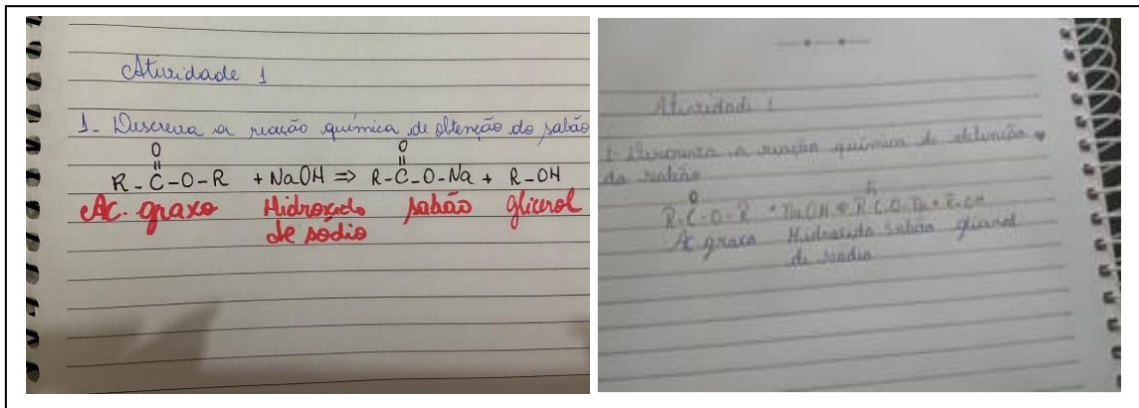 Atividade 1
1- Descreva a reação química de obtenção do sabão
O
||
R-C-O-R + NaOH ⇒ R-C-O-Na + R-OH
O
||
Ac. graxo Hidroxido sabão glicerol
de sodio
Atividade 1
1- Descreva a reação química de obtenção
do sabão
O
R-C-O-R + NaOH R-C-O-Na + R-OH
Ac graxo Hidroxido sabão glicerol
de sodio